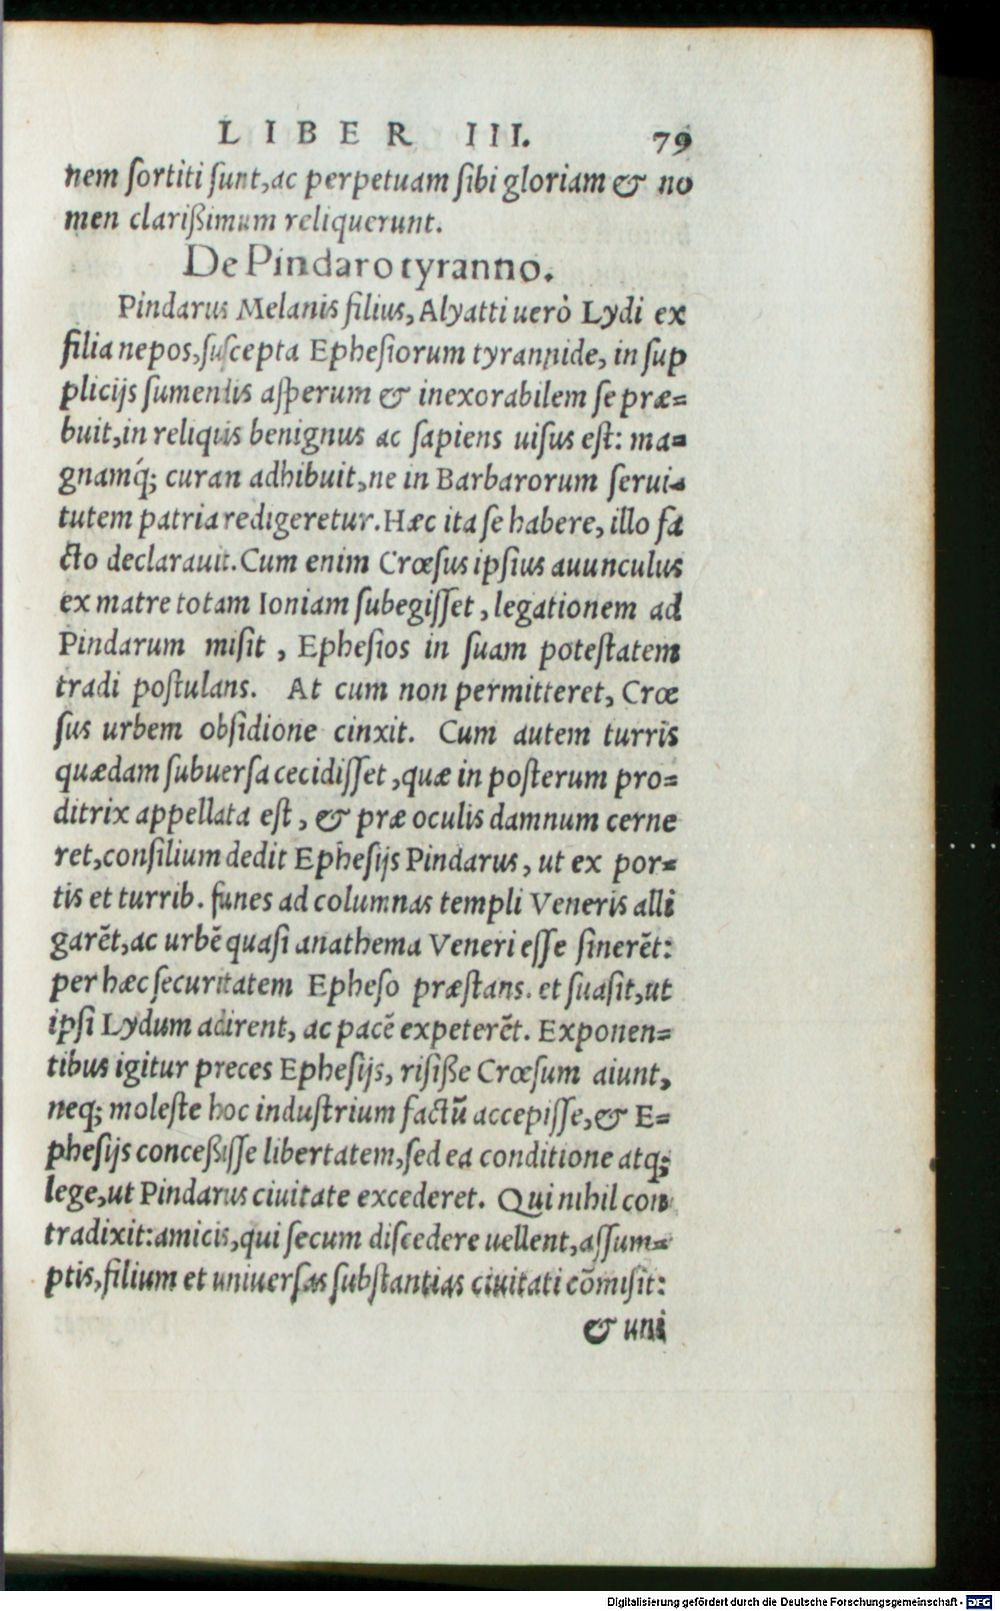 LIBER III. 79
nem ſortiti ſunt, ac perpetuam ſibi gloriam & no
men clarißimum reliquerunt.
De Pindaro tyranno.
Pindarus Melanis filius, Alyatti uerò Lydi ex
filia nepos, ſuſcepta Epheſiorum tyrannide, in ſup
plicijs ſumendis aſperum & inexorabilem ſe præ=
buit, in reliquis benignus ac ſapiens uiſus eſt: ma=
gnamq́; curan adhibuit, ne in Barbarorum ſerui=
tutem patria redigeretur. Hæc ita ſe habere, illo fa
cto declarauit. Cum enim Crœſus ipſius auunculus
ex matre totam Ioniam ſubegiſſet, legationem ad
Pindarum miſit, Epheſios in ſuam poteſtatem
tradi poſtulans. At cum non permitteret, Crœ
ſus urbem obſidione cinxit. Cum autem turris
quædam ſubuerſa cecidiſſet, quæ in poſterum pro=
ditrix appellata eſt, & præ oculis damnum cerne
ret, conſilium dedit Epheſijs Pindarus, ut ex por=
tis et turrib. funes ad columnas templi Veneris alli
garēt, ac urbē quaſi anathema Veneri eſſe ſinerēt:
per hæc ſecuritatem Epheſo præſtans. et ſuaſit, ut
ipſi Lydum adirent, ac pacē expeterēt. Exponen=
tibus igitur preces Epheſijs, riſiße Crœſum aiunt,
neq; moleſte hoc induſtrium factū accepiſſe, & E=
pheſijs conceßiſſe libertatem, ſed ea conditione atq;
lege, ut Pindarus ciuitate excederet. Qui nihil con
tradixit: amicis, qui ſecum diſcedere uellent, aſſum=
ptis, filium et uniuerſas ſubſtantias ciuitati cōmiſit:
& uni
Digitalisierung gefördert durch die Deutsche Forschungsgemeinschaft - DFG